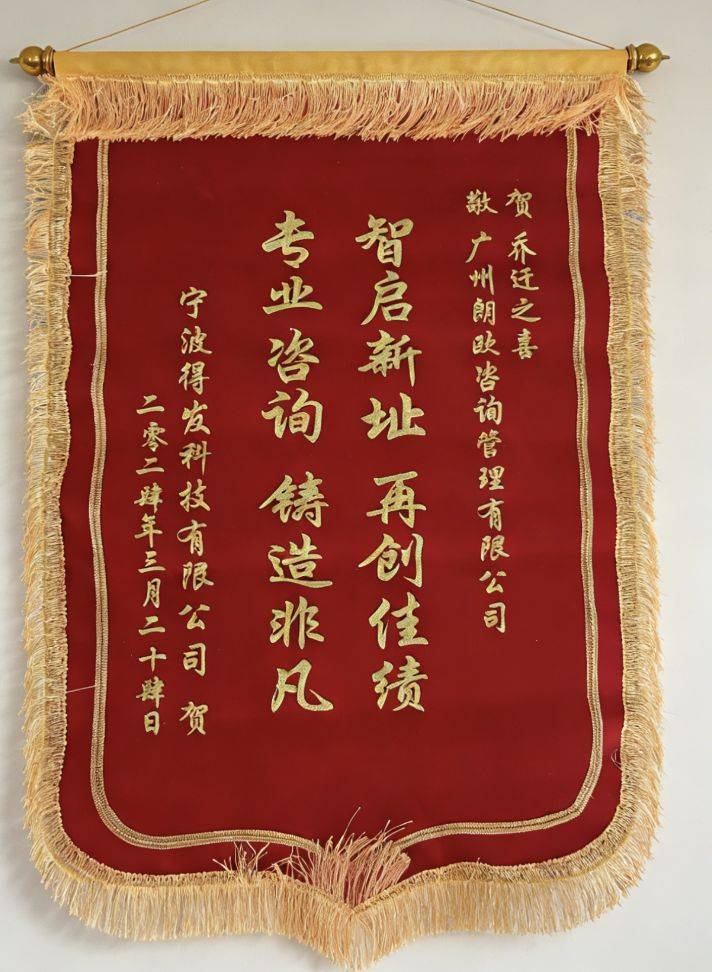 贺 乔迁之喜
敬 广州朗欧咨询管理有限公司
智启新址 再创佳绩
专业咨询 铸造非凡
宁波得发科技有限公司 贺
二零二肆年三月二十肆日